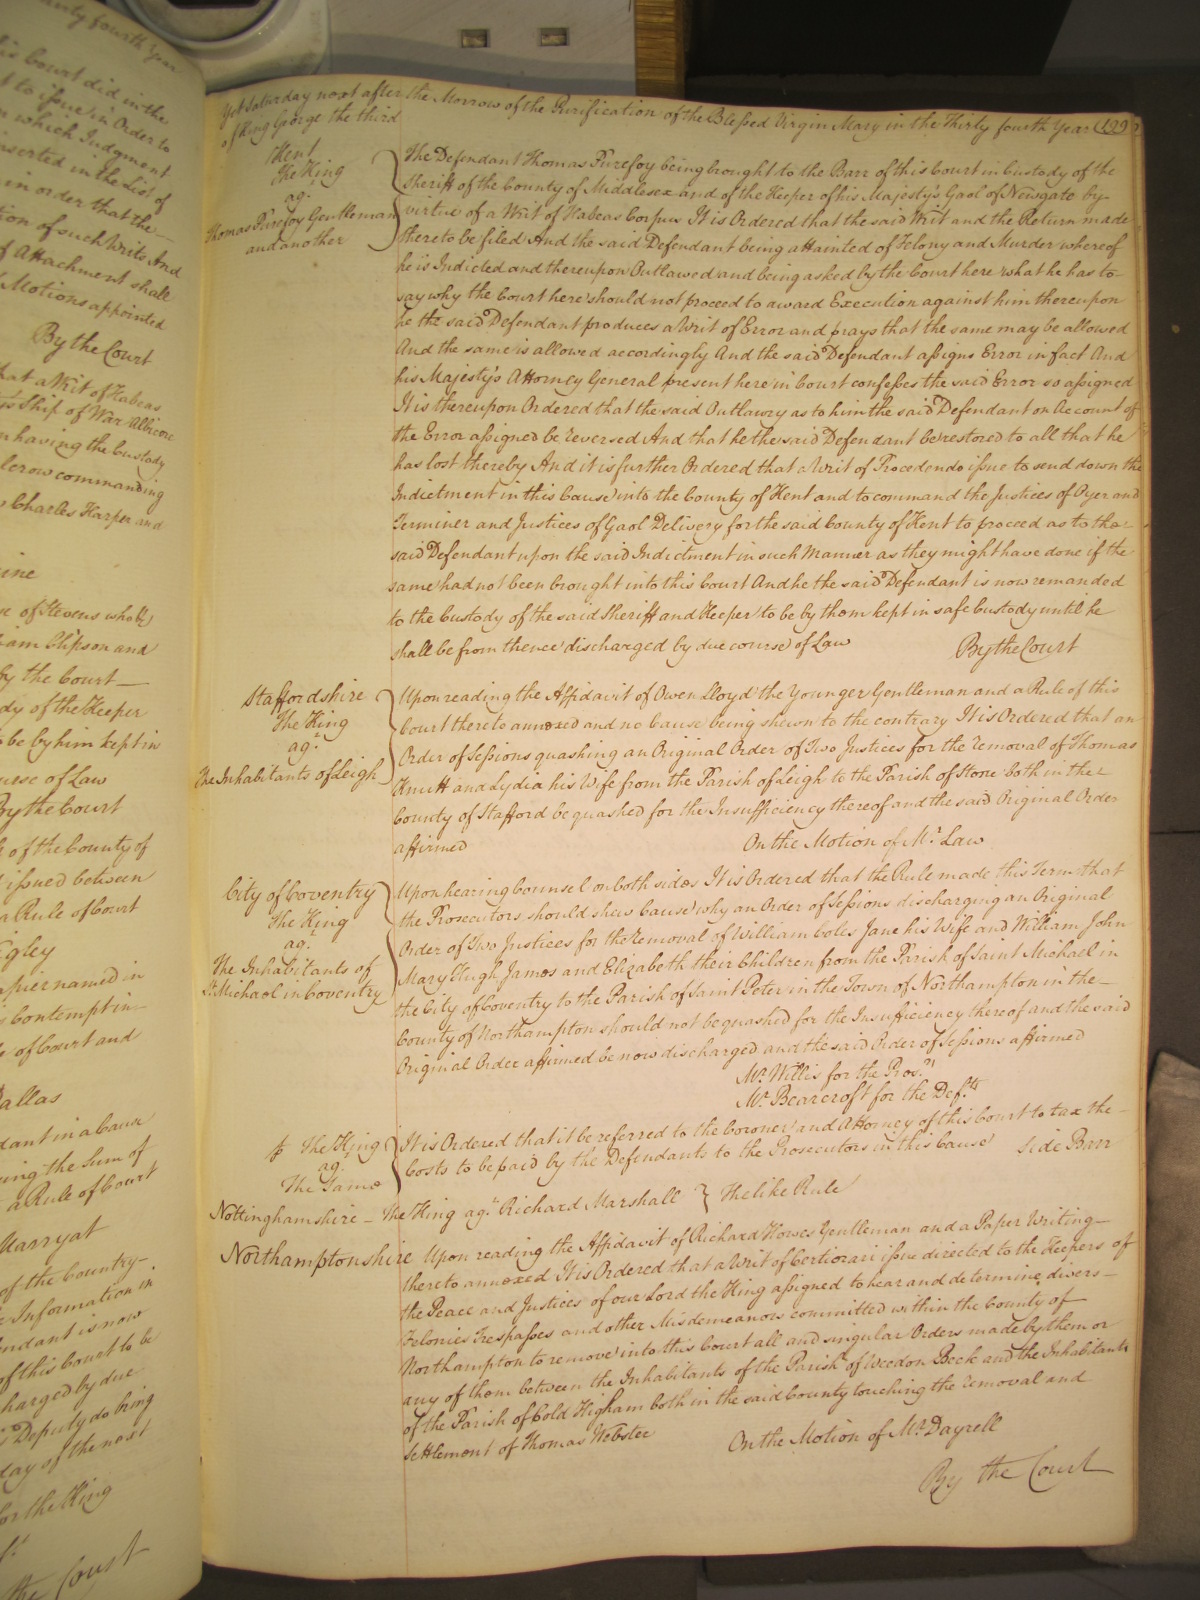 nty fourth Year
is Court did in the
t to issue in Order to
n which Judgment
inserted in the List of
in order that the
tion of such Writs And
f Attachment shall
Motions appointed
By the Court
hat a Writ of Habeas
Ship of War Albicore
n having the Custody
commanding
Charles Harper and
ine
e of Stevens who
iam Clipson and
by the Court
dy of the Keeper
be by him kept in
urse of Law
By the Court
of the County of
issued between
a Rule of Court
igley
apier named in
Contempt in
of Court and
allas
dant in a Cause
ing the Sum of
a Rule of Court
Marryat
of the Country
Information in
endant is now
of this Court to be
harged by due
Deputy do bring
day of the next
for the King
the Court
Yet Saturday next after the Morrow of the Purification of the Blessed Virgin Mary in the Thirty fourth Year 139
of King George the third
Kent
The King
agt.
Thomas Purefoy Gentleman
and another
The Defendant Thomas Purefoy being brought to the Barr of this Court in Custody of the
Sheriff of the County of Middlesex and of the Keeper of his Majesty's Gaol of Newgate by
virtue of a Writ of Habeas Corpus It is Ordered that the said Writ and the Return made
thereto be filed And the said Defendant being attainted of Felony and Murder whereof
he is Indicted and thereupon Outlawed and being asked by the Court here what he has to
say why the Court here should not proceed to award Execution against him thereupon
he the said Defendant produces a Writ of Error and prays that the same may be allowed
And the same is allowed accordingly And the said Defendant assigns Error in fact And
his Majesty's Attorney General present here in Court confesses the said Error so assigned
It is thereupon Ordered that the said Outlawry as to him the said Defendant on Account of
the Error assigned be reversed And that he the said Defendant be restored to all that he
has lost thereby And it is further Ordered that a Writ of Procedendo issue to send down the
Indictment in this Cause into the County of Kent and to command the Justices of Oyer and
Terminer and Justices of Gaol Delivery for the said County of Kent to proceed as to the
said Defendant upon the said Indictment in such Manner as they might have done if the
same had not been brought into this Court And he the said Defendant is now remanded
to the Custody of the said Sheriff and Keeper to be by them kept in safe Custody until he
shall be from thence discharged by due course of Law By the Court
Staffordshire
The King
agt.
The Inhabitants of Leigh
Upon reading the Affidavit of Owen Lloyd the Younger Gentleman and a Rule of this
Court thereto annexed and no Cause being shewn to the contrary It is Ordered that an
Order of Sessions quashing an Original Order of Two Justices for the removal of Thomas
Knutt and Lydia his Wife from the Parish of Leigh to the Parish of Stone both in the
County of Stafford be quashed for the Insufficiency thereof and the said Original Order
affirmed On the Motion of Mr. Law
City of Coventry
The King
agt.
The Inhabitants of
St. Michael in Coventry
Upon hearing Counsel on both sides It is Ordered that the Rule made this Term that
the Prosecutors should shew Cause why an Order of Sessions discharging an Original
Order of Two Justices for the Removal of William Coles Jane his Wife and William John
Mary Hugh James and Elizabeth their Children from the Parish of Saint Michael in
the City of Coventry to the Parish of Saint Peter in the Town of Northampton in the
County of Northampton should not be quashed for the Insufficiency thereof and the said
Original Order affirmed be now discharged and the said Order of Sessions affirmed
Mr. Willis for the Pros.rs
Mr. Bearcroft for the Def.ts
The King
agt.
The Same
It is Ordered that it be referred to the Coroner and Attorney of this Court to tax the
Costs to be paid by the Defendants to the Prosecutors in this Cause Side Barr
Nottinghamshire - The King agt. Richard Marshall } The like Rule
Northamptonshire Upon reading the Affidavit of Richard Howes Gentleman and a Paper Writing
thereto annexed It is Ordered that a Writ of Certiorari issue directed to the Keepers of
the Peace and Justices of our Lord the King assigned to hear and determine divers
Felonies Trespasses and other Misdemeanors committed within the County of
Northampton to remove into this Court all and singular Orders made by them or
any of them between the Inhabitants of the Parish of Weedon Beck and the Inhabitants
of the Parish of Cold Higham both in the said County touching the removal and
settlement of Thomas Webster On the Motion of Mr. Dayrell
By the Court